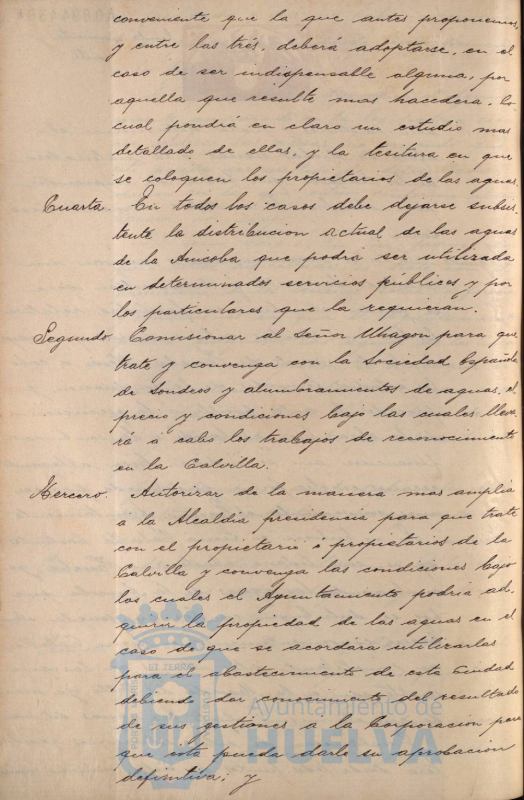 conveniente que la que antes proponemos,
y entre las trés, deberá adoptarse, en el
caso de ser indispensable alguna, por
aquella que resulte mas hacedera, lo
cual pondrá en claro un estudio mas
detallado de ellas, y la tesitura en que
se coloquen los propietarios de las aguas.
Cuarta. En todos los casos debe dejarse subsis
tente la distribucion actual de las aguas
de la Amcoba que podrá ser utilizada
en determinados servicios públicos y por
los particulares que la requieran.
Segundo. Comisionar al Señor Uhagon para que
trate y convenga con la Sociedad Española
de Sondeos y alumbramientos de aguas, el
precio y condiciones bajo las cuales lleva
rá a cabo los trabajos de reconocimiento
en la Calvilla.
Tercero. Autorizar de la manera mas amplia
a la Alcaldia presidencia para que trate
con el propietario ó propietarios de la
Calvilla y convenga las condiciones bajo
las cuales el Ayuntamiento podria ad-
quirir la propiedad de las aguas en el
caso de que se acordara utilizarlas
para el abastecimiento de esta Ciudad
debiendo dar conocimiento del resultado
de sus gestiones a la Corporacion para
que esta pueda darle su aprobacion
definitiva; y
Ayuntamiento de
HUELVA